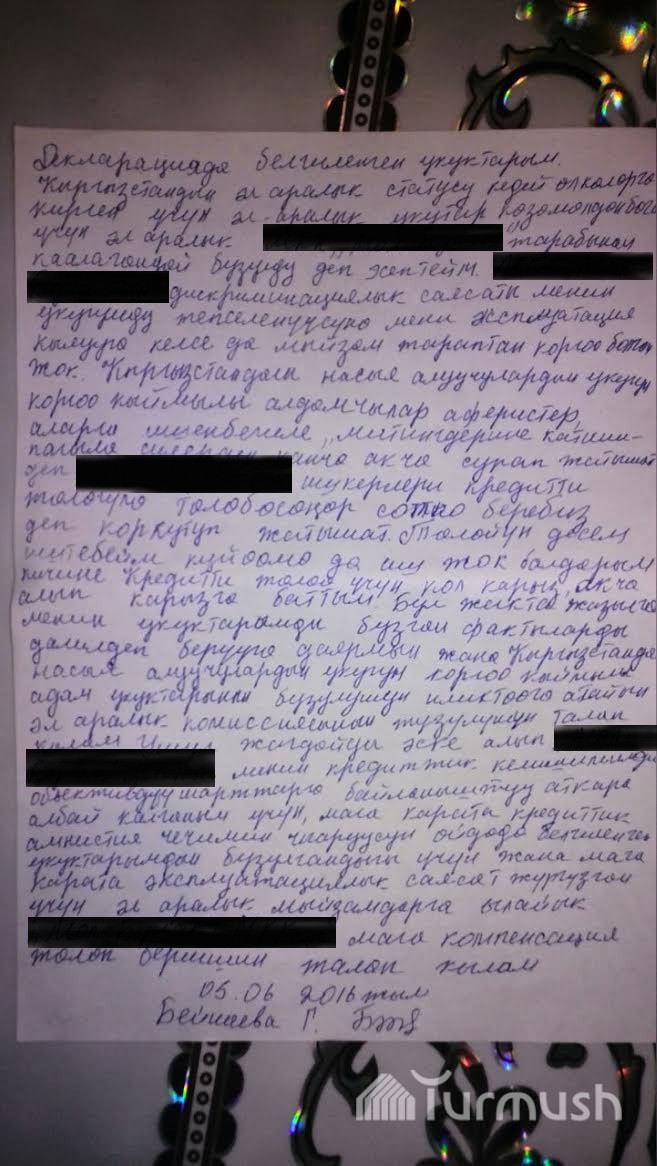 Декларацияда белгиленген укуктарым.
Кыргызстандын эл аралык статусу кедей өлкөлөргө
кирген үчүн эл аралык укуктар көзөмөлдөн
үчүн эл аралык тарабынан
каалагандай бузууда деп эсептейм.
дискриминациялык саясаты менин
укугумду
кылууга келсе да мыйзам тараптан коргоо болгон
жок. Кыргызстандагы насыя алуучулардын укугун
коргоо кыймылы алдамчылар аферистер,
аларга ишенбегиле, митингдерине катыш-
пагыла силерден канча акча сурап жатышат
деп шукерлери кредитти
төлөгүлө төлөбөсөңөр сотко беребиз
деп коркутуп жатышат. Төлөйүн десем
иштебейм күйөөмө да иш жок балдарым
кичине кредитти төлөө үчүн кол карыз акча
алып карызга баттым. Бул жакта жазылган
менин укуктарымды бузган фактыларды
далилдеп берүүгө даярмын жана Кыргызстанда
насыя алуучулардын укугун коргоо кыймылы
адам укуктарынын бузулушун иликтөөгө атайын
эл аралык комиссиясынын түзүлүшүн талап
кылам Ушул жагдайды эске алып
менин кредиттик келишимимди
объективдүү шарттарга байланыштуу аткара
албай калганым үчүн, мага карата кредиттик
амнистия чечимин чыгаруусун ойдодо белгиленген
укуктарымдын бузулгандыгы үчүн жана мага
карата эксплуатациялык саясат жүргүзгөн
үчүн эл аралык мыйзамдарга ылайык
мага компенсация
төлөп беришин талап кылам
05.06 2016 жыл
Г.
Turmush